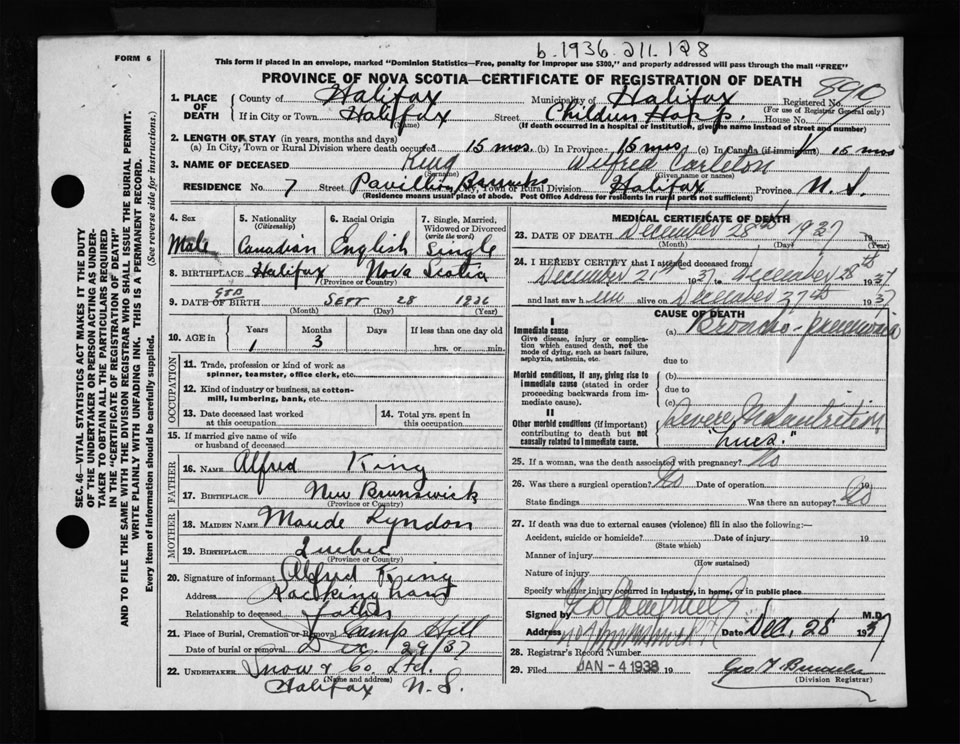 b.1936.211.128
FORM 6
This form if placed in an envelope, marked "Dominion Statistics—Free, penalty for improper use $300," and properly addressed will pass through the mail "FREE"
PROVINCE OF NOVA SCOTIA—CERTIFICATE OF REGISTRATION OF DEATH
SEC. 46—VITAL STATISTICS ACT MAKES IT THE DUTY
OF THE UNDERTAKER OR PERSON ACTING AS UNDER-
TAKER TO OBTAIN ALL THE PARTICULARS REQUIRED
IN THE "CERTIFICATE OF REGISTRATION OF DEATH"
AND TO FILE THE SAME WITH THE DIVISION REGISTRAR WHO SHALL ISSUE THE BURIAL PERMIT.
WRITE PLAINLY WITH UNFADING INK. THIS IS A PERMANENT RECORD.
Every item of information should be carefully supplied. (See reverse side for instructions.)
1. PLACE OF DEATH County of Halifax Municipality of Halifax Registered No. 890
(For use of Registrar General only)
If in City or Town Halifax Street Children Hosp. House No.
(Name) (If death occurred in a hospital or institution, give the name instead of street and number)
2. LENGTH OF STAY (in years, months and days)
(a) In City, Town or Rural Division where death occurred 15 mos. (b) In Province 15 mos. (c) In Canada (if immigrant) 15 mos
3. NAME OF DECEASED King Wilfred Carleton
(Surname) (Given name or names)
RESIDENCE No. 7 Street Pavillion City, Town or Rural Division Halifax Province N.S.
(Residence means usual place of abode. Post Office Address for residents in rural parts not sufficient)
4. Sex Male
5. Nationality (Citizenship) Canadian
6. Racial Origin English
7. Single, Married, Widowed or Divorced (write the word) Single
8. BIRTHPLACE Halifax Nova Scotia
(Province or Country)
9. DATE OF BIRTH Sept 28 1936
(Month) (Day) (Year)
10. AGE in Years 1 Months 3 Days If less than one day old hrs. or min.
OCCUPATION
11. Trade, profession or kind of work as
spinner, teamster, office clerk, etc.
12. Kind of industry or business, as cotton-
mill, lumbering, bank, etc.
13. Date deceased last worked
at this occupation
14. Total yrs. spent in
this occupation
15. If married give name of wife
or husband of deceased
FATHER
16. NAME Alfred King
17. BIRTHPLACE New Brunswick
(Province or Country)
MOTHER
18. MAIDEN NAME Maude Lyndon
19. BIRTHPLACE Quebec
(Province or Country)
20. Signature of informant Alfred King
Address
Relationship to deceased father
21. Place of Burial, Cremation or Removal Camp Hill
Date of burial or removal Dec 29/37
22. UNDERTAKER Snow & Co. Ltd.
(Name and address)
Halifax N.S.
MEDICAL CERTIFICATE OF DEATH
23. DATE OF DEATH December 28th 1937 19
(Month) (Day) (Year)
24. I HEREBY CERTIFY that I attended deceased from
December 21st 1937 to December 28th 1937
and last saw him alive on December 27th 1937
CAUSE OF DEATH
I
Immediate cause
Give disease, injury or complica-
tion which caused death, not the
mode of dying, such as heart failure,
asphyxia, asthenia, etc.
(a) Broncho-pneumonia
due to
Morbid conditions, if any, giving rise to
immediate cause (stated in order
proceeding backwards from im-
mediate cause).
(b)
due to
(c)
II
Other morbid conditions (if important)
contributing to death but not
causally related to immediate cause.
Severe Malnutrition
"Lues."
25. If a woman, was the death associated with pregnancy? No
26. Was there a surgical operation? No Date of operation 19
State findings Was there an autopsy? No
27. If death was due to external causes (violence) fill in also the following:—
Accident, suicide or homicide? Date of injury 19
(State which)
Manner of injury
(How sustained)
Nature of injury
Specify whether injury occurred in industry, in home, or in public place
Signed by M.D.
Address Date Dec. 28 1937
28. Registrar's Record Number
29. Filed JAN -4 1938 19
(Division Registrar)